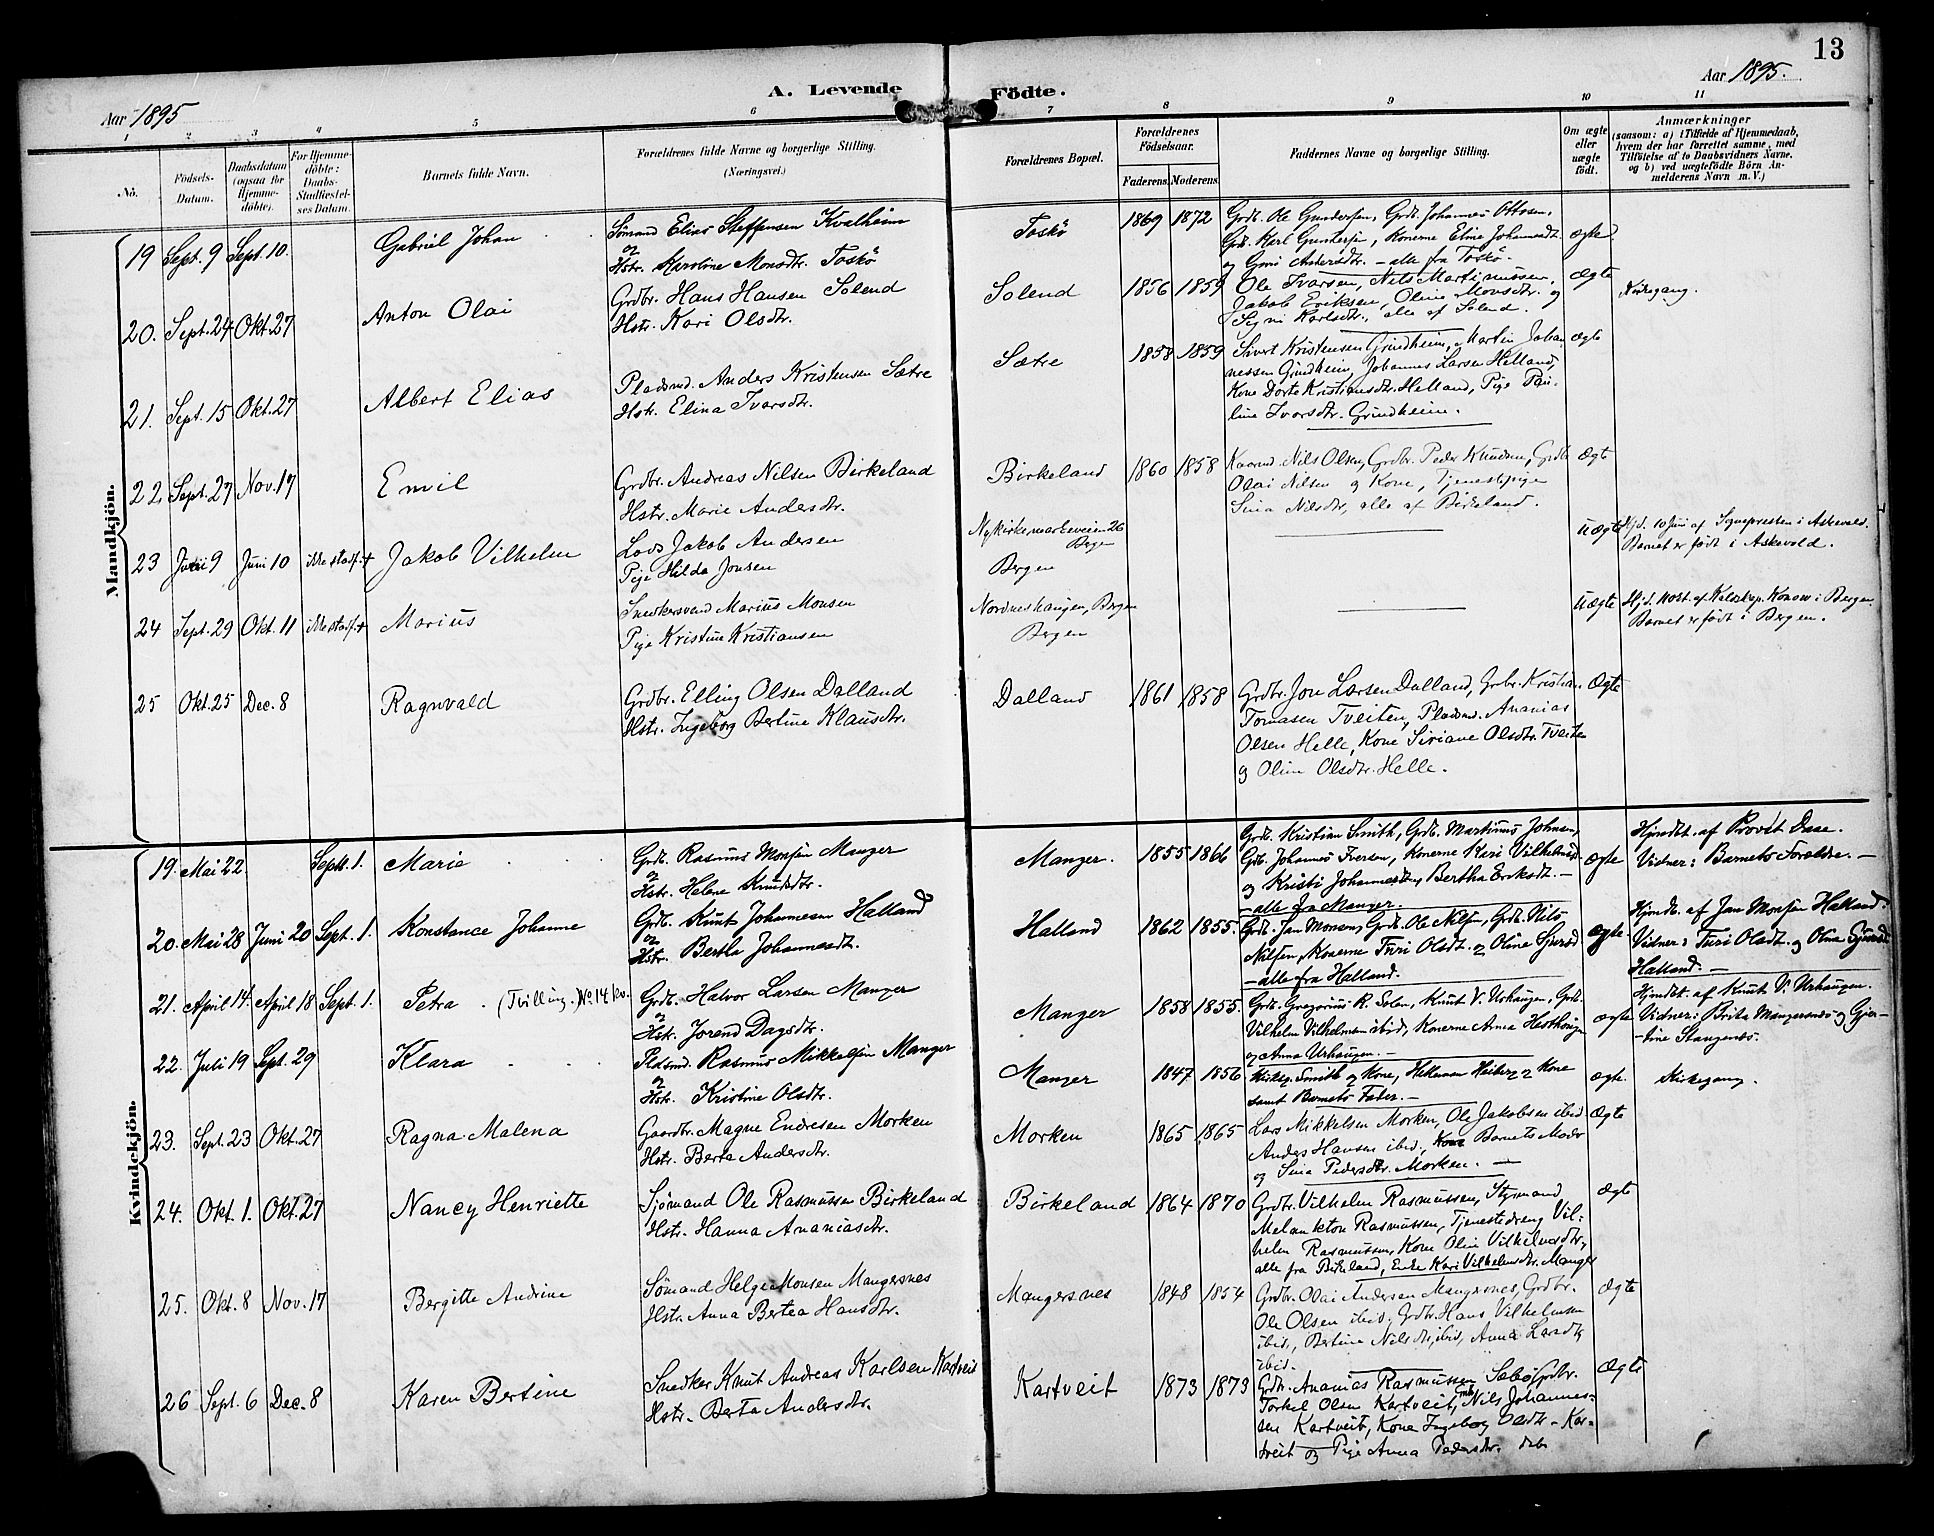 13
Aar 1895
A. Levende Födte.
Aar 1895.
1 2 3 4 5 6 7 8 9 10 11
No.
Födsels-Datum.
Daabsdatum (ogsaa for Hjemme-döbte).
For Hjemme-döbte: Daabs-Stadfæstelses Datum.
Barnets fulde Navn.
Forældrenes fulde Navne og borgerlige Stilling.
(Næringsvei.)
Forældrenes Bopæl.
Forældrenes Födselsaar.
Faderens. Moderens.
Faddernes Navne og borgerlige Stilling.
Om ægte eller uægte födt.
Anmærkninger
(saasom: a) i Tilfælde af Hjemmedaab,
hvem der har forrettet samme, med
Tilföielse af to Daabsvidners Navne.
og b) ved uægtefödte Börn An-
melderens Navn m. V.)
Mandkjön.
19 Sept. 9 Sept. 10. Gabriel Johan
Sømand Elias Steffensen Kvalheim
og
Hstr. Karoline Monsdtr. Toskö
Toskö 1869 1872
Grdb. Ole Gundersen, Grdb. Johannes Ottosen,
Grdb. Karl Gundersen, Konerne Eline Johannesdt.
og Guri Andersdtr. – alle fra Toskö.
ægte
20. Sept. 24 Okt. 27 Anton Olai
Grdbr. Hans Hansen Solend
Hstr. Kari Olsdtr.
Solend 1856 1859
Ole Ivarsen, Nils Martinussen,
Jakob Eriksen, Oline Monsdtr. og
Signi Karlsdtr., alle af Solend.
Ægte
Kirkegang.
21. Sept. 15 Okt. 27 Albert Elias
Pladsmd. Anders Kristensen Sætre
Hstr. Elina Ivarsdtr.
Sætre 1858 1859
Sivert Kristensen Grindheim, Martin Johan-
nessen Grindheim, Johannes Larsen Helland,
Kone Dorte Kristiansdtr. Helland, Pige Pau-
line Ivarsdtr. Grindheim.
Ægte
22 Sept. 27 Nov. 17 Emil
Grdbr. Andreas Nilsen Birkeland
Hstr. Marie Andersdtr.
Birkeland 1860 1858
Kaarmd. Nils Olsen, Grdbr. Peder Knudsen, Grdb.
Olai Nilsen og Kone, Tjenestepige
Sina Nilsdtr, alle af Birkeland.
Ægte
23 Juni 9 Juni 10 ikke stadf. + Jakob Vilhelm
Lods Jakob Andersen
Pige Hilda Jonsen
Nykirkemarkeveien 26
Bergen
Bergen
Uægte
Hjd. 10 Juni af Sognepresten i Askevold.
Barnet er født i Askevold.
24 Sept. 29 Okt. 11 ikke stadf. + Marius
Snedkersvend Marius Monsen
Pige Kristine Kristiansen
Nordneshaugen, Bergen
Bergen
Uægte
Barnet er født i Bergen.
25 Okt. 25 Dec. 8 Ragnvald
Grdbr. Elling Olsen Dalland
Hstr. Ingeborg Bertine Klausdtr.
Dalland 1861 1858
Grdbr. Jon Larsen Dalland, Grbr. Kristian
Tomasen Tveiten, Pladsmd. Ananias
Olsen Helle, Kone Siriane Olsdtr. Tveiten
og Oline Olsdtr. Helle.
Ægte
Kvindekjön.
19. Mai 22 Sept. 1. Marie
Grdb. Rasmus Monsen Manger
og
Hstr. Helene Knudsdtr.
Manger. 1855 1866
Grdb. Kristian Smith, Grdb. Martinus Johnsen,
Grdb. Johannes Iversen, Konerne Kari Vilhelmsdt.
og Kristi Johannesdtr, Bertha Eriksdt. –
– alle fra Manger.
ægte
Hjmdt. af Provst Daae.
Vidner: Barnets Forældre. –
20. Mai 28 Juni 20 Sept. 1. Konstance Johanne
Grdb. Knut Johannesen Halland
og
Hstr. Bertha Johannesdt.
Halland 1862 1855.
Grdb. Jan Monsen, Grdb. Ole Nilsen, Grdb. Nils
Nilsen, Konerne Turi Olsdt. og Oline Sjursd
– alle fra Halland.
ægte.
Hjmdt. af Jan Monsen Halland.
Vidner: Turi Olsdt. og Olina Sjursdt
Halland. –
21. April 14. April 18 Sept. 1. Petra (Tvilling. No. 14 ko.
Grdb. Halvor Larsen Manger
og
Hstr. Jorend Dagsdtr.
Manger 1858 1855.
Grdb. Gregorius R. Solen, Knut V. Urhaugen, Grdb.
Vilhelm Vilhelmsen ibid, Konerne Anna Hesthougen
og Anna Urhaugen. –
ægte
Hjmdet. af Knut V. Urhaugen.
Vidner: Brita Mangersnes og Gjer-
-tine Stangenes.
22. Juli 19 Sept. 29 Klara
Pladsmd. Rasmus Mikkelsen Manger
og
Hstr. Kristine Olsdtr.
Manger 1847 1856
Kirkesp. Smith og Kone, Heiberg og Kone
samt Barnets Fader. –
Ægte.
Kirkegang.
23. Sept. 23 Okt. 27 Ragna Malena
Gaardbr. Magne Endresen Morken
Hstr. Berta Andersdtr.
Morken 1865 1865
Lars Mikkelsen Morken, Ole Jakobsen ibid
Anders Hansen ibid, Kone Barnets Moder
og Sina Pedersdtr. Morken. –
Ægte
24. Okt. 1. Okt. 27 Nancy Henriette
Sjømand Ole Rasmussen Birkeland
Hstr. Hanna Ananiasdtr.
Birkeland 1864 1870
Grdbr. Vilhelm Rasmussen, Styrmand
Melankton Rasmussen, Tjenestedreng Vil-
helm Rasmussen, Kone Olina Vilhelmsdtr,
alle fra Birkeland, Enke Kari Vilhelmsdtr. Manger
Ægte
25. Okt. 8 Nov. 17 Bergitte Andrine
Sømand Helge Monsen Mangersnes
Hstr. Anna Bertea Hansdtr.
Mangersnes 1848 1854
Grdbr. Olai Andersen Mangersnes, Grdbr.
Ole Olsen ibid, Grdbr. Hans Vilhelmsen
ibid., Bertine Nilsdtr, ibid, Anna Larsdtr
ibid.
Ægte
26 Sept. 6 Dec. 8 Karen Bertine
Snedker Knut Andreas Karlsen Kartveit
Hstr. Berta Andersdtr.
Kartveit 1873 1873
Grdbr. Ananias Rasmussen Sæbø, Grdbr.
Torkel Olsen Kartveit, Nils Johannes-
sen Kartveit, Kone Ingeborg Olsdtr. Kar-
tveit og Pige Anna Pedersdtr.
Ægte